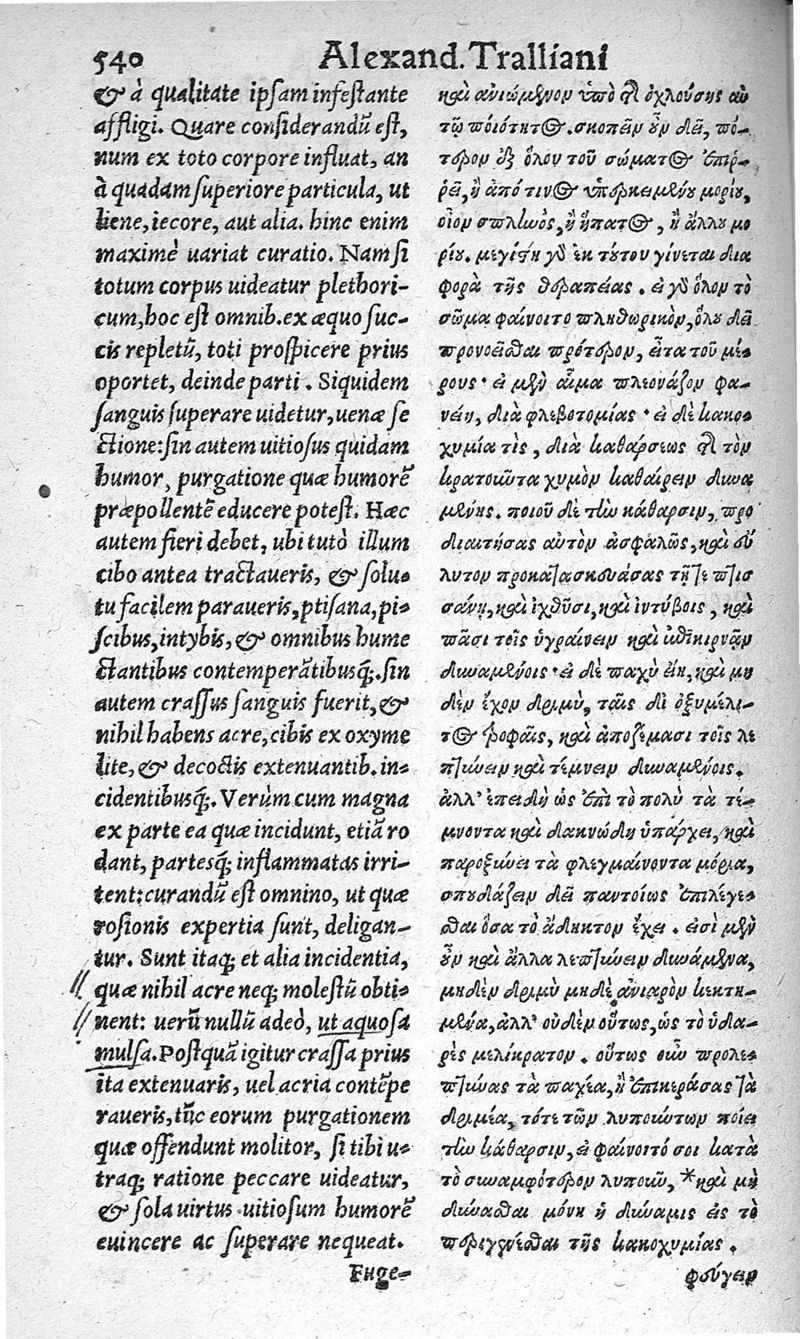 540 Alexand. Tralliani
& à qualitate ipsam infestante
affligi. Quare considerandū est,
num ex toto corpore influat, an
à quadam superiore particula, ut
liene, iecore, aut alia. hinc enim
maximè uariat curatio. Nam si
totum corpus uideatur plethori-
cum, hoc est omnib. ex æquo suc-
cis repletū, toti prospicere prius
oportet, deinde parti. Siquidem
sanguis superare uidetur, uenæ se
ctione: sin autem uitiosus quidam
humor, purgatione quæ humorē
præpollentē educere potest. Hæc
autem fieri debet, ubi tutò illum
cibo antea tractaueris, & solu-
tu facilem paraueris, ptisana, pi-
scibus, intybis, & omnibus hume
ctantibus contemperātibusq;. sin
autem crassus sanguis fuerit, &
nihil habens acre, cibis ex oxyme
lite, & decoctis extenuantib. in-
cidentibusq;. Verùm cum magna
ex parte ea quæ incidunt, etiā ro
dant, partesq; inflammatas irri-
tent: curandū est omnino, ut quæ
rosionis expertia sunt, deligan-
tur. Sunt itaq; et alia incidentia,
quæ nihil acre neq; molestū obti-
nent: uerū nullū adeò, ut aquosa
mulsa. Postquā igitur crassa prius
ita extenuaris, uel acria contēpe
raueris, tūc eorum purgationem
quæ offendunt molitor, si tibi u-
traq; ratione peccare uideatur,
& sola uirtus uitiosum humorē
euincere ac superare nequeat.
Fuge-
καὶ ἀνιώμενον ὑπὸ τῆ ὀχλούσης αὐ
τῷ ποιότητος. σκοπεῖν οὖν δεῖ, πό-
τερον ἐξ ὅλου τοῦ σώματος ἐπιρ-
ρεῖ, ἢ ἀπό τινος ὑπερκειμένου μορίου,
οἷον σπληνὸς, ἢ ἥπατος, ἢ ἄλλου μο
ρίου. μεγίστη γὸ ἐκ τούτου γίνεται δια
φορὰ τῆς θεραπείας. εἰ γὸ ὅλον τὸ
σῶμα φαίνοιτο πληθωρικὸν, ὅλου δεῖ
προνοεῖσθαι πρότερον, εἶτα τοῦ μέ-
ρους· εἰ μὲν αἷμα πλεονάζον φα-
νείη, διὰ φλεβοτομίας· εἰ δὲ κακο-
χυμία τὶς, διὰ καθάρσεως τῆ τὸν
κρατοῦντα χυμὸν καθαίρειν δυνα
μένης. ποιοῦ δὲ τὴν κάθαρσιν, προ
διαιτήσας αὐτὸν ἀσφαλῶς, καὶ εὔ
λυτον προκατασκευάσας τῇ τε πτισ
σάνῃ, καὶ ἰχθύσι, καὶ ἰντύβοις, καὶ
πᾶσι τοῖς ὑγραίνειν καὶ ἐπικιρνᾷν
δυναμένοις· εἰ δὲ παχὺ εἴη, καὶ μη
δὲν ἔχον δριμὺ, ταῖς δι ὀξυμέλι-
τος τροφαῖς, καὶ ἀποζέμασι τοῖς λε
πτύνειν καὶ τέμνειν δυναμένοις.
ἀλλ' ἐπειδὴ ὡς ἐπὶ τὸ πολὺ τὰ τέ-
μνοντα καὶ δακνώδη ὑπάρχει, καὶ
παροξύνει τὰ φλεγμαίνοντα μόρια,
σπουδάζειν δεῖ παντοίως ἐπιλέγε-
σθαι ὅσα τὸ ἄδηκτον ἔχει. εἰσὶ μὲν
οὖν καὶ ἄλλα λεπτύνειν δυνάμενα,
μηδὲν δριμὺ μηδὲ ἀνιαρὸν κεκτη-
μένα, ἀλλ' οὐδὲν οὕτως, ὡς τὸ ὑδα-
ρὲς μελίκρατον. οὕτως οὖν προλε-
πτύνας τὰ παχέα, ἢ ἐπικεράσας τὰ
δριμέα, τότε τῶν λυπούντων ποιει
τὴν κάθαρσιν, εἰ φαίνοιτό σοι κατὰ
τὸ συναμφότερον λυποῦν, *καὶ μὴ
δύνασθαι μόνη ἡ δύναμις εἰς τὸ
περιγενέσθαι τῆς κακοχυμίας.
φεύγειν